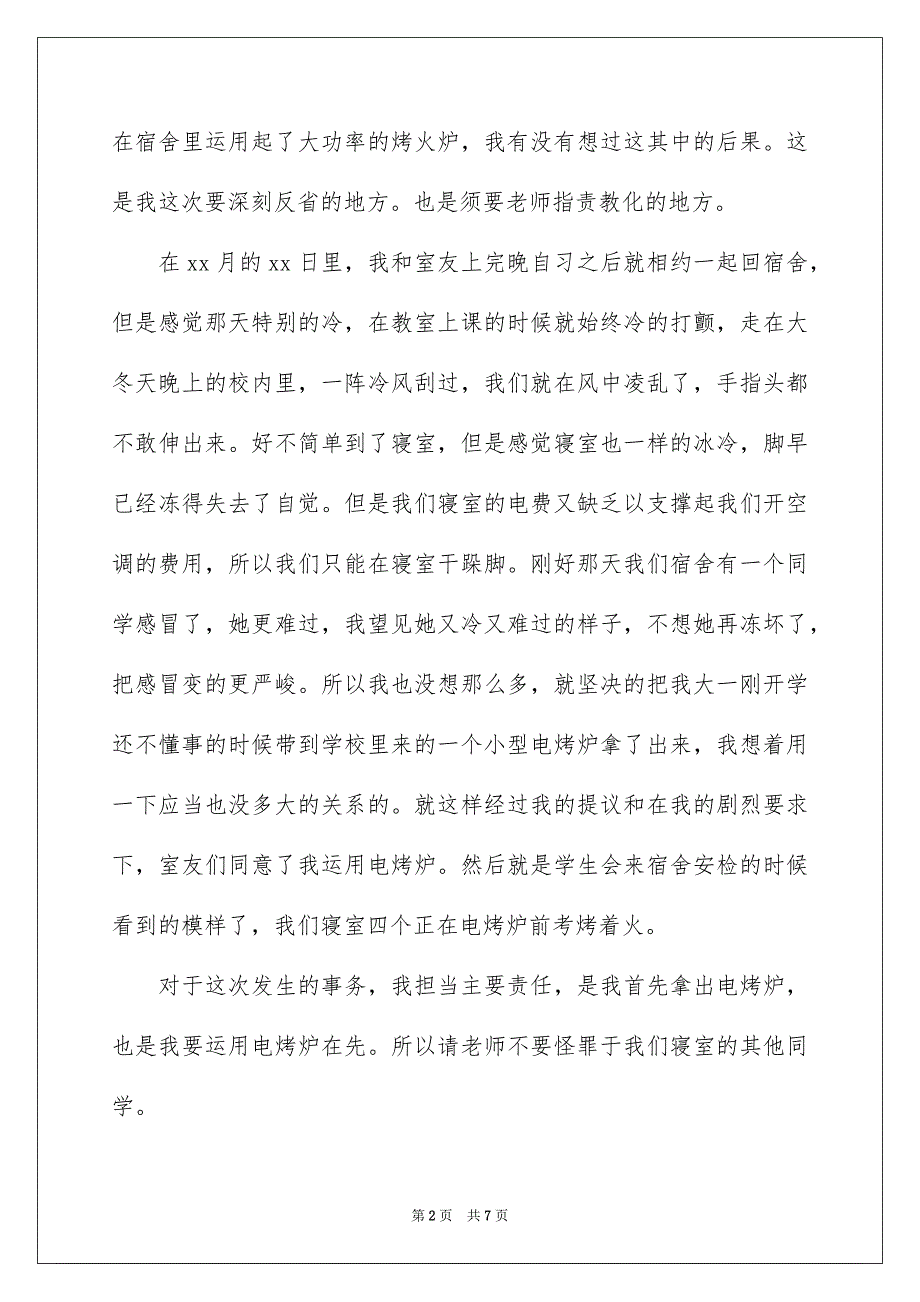 在宿舍里运用起了大功率的烤火炉，我有没有想过这其中的后果。这
是我这次要深刻反省的地方。也是须要老师指责教化的地方。
在 xx 月的 xx 日里，我和室友上完晚自习之后就相约一起回宿舍，
但是感觉那天特别的冷，在教室上课的时候就始终冷的打颤，走在大
冬天晚上的校内里，一阵冷风刮过，我们就在风中凌乱了，手指头都
不敢伸出来。好不简单到了寝室，但是感觉寝室也一样的冰冷，脚早
已经冻得失去了自觉。但是我们寝室的电费又缺乏以支撑起我们开空
调的费用，所以我们只能在寝室干跺脚。刚好那天我们宿舍有一个同
学感冒了，她更难过，我望见她又冷又难过的样子，不想她再冻坏了，
把感冒变的更严峻。所以我也没想那么多，就坚决的把我大一刚开学
还不懂事的时候带到学校里来的一个小型电烤炉拿了出来，我想着用
一下应当也没多大的关系的。就这样经过我的提议和在我的剧烈要求
下，室友们同意了我运用电烤炉。然后就是学生会来宿舍安检的时候
看到的模样了，我们寝室四个正在电烤炉前考烤着火。
对于这次发生的事务，我担当主要责任，是我首先拿出电烤炉，
也是我要运用电烤炉在先。所以请老师不要怪罪于我们寝室的其他同
学。
第 2 页 共 7 页